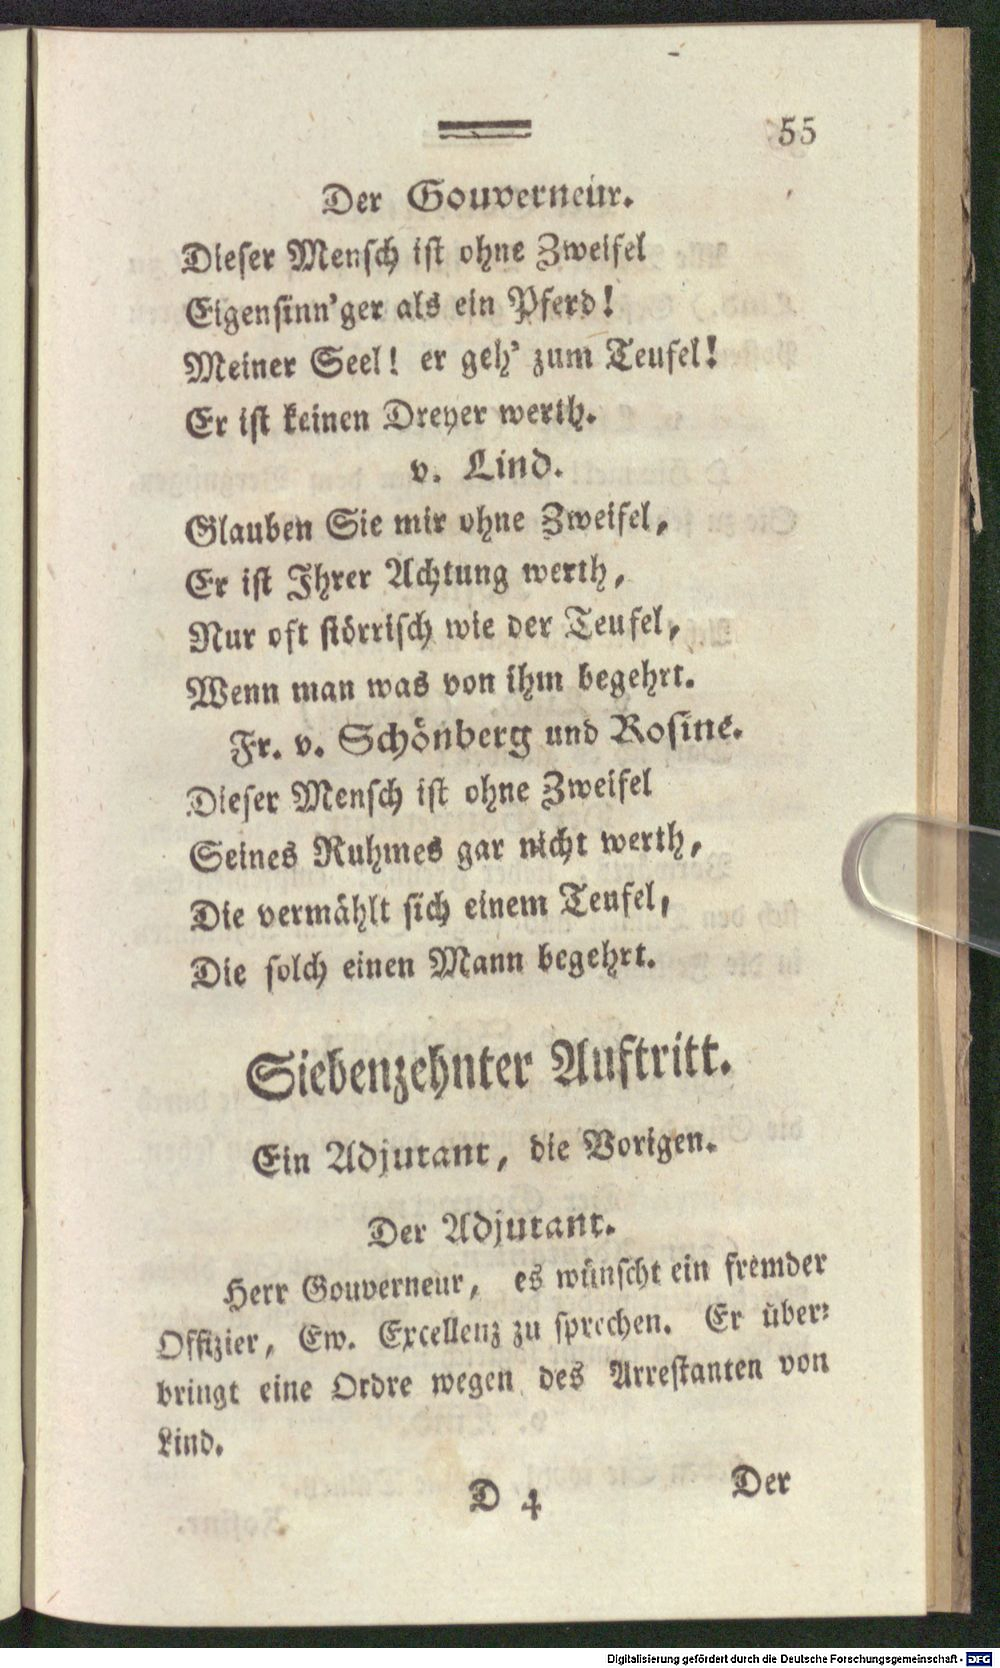 55
Der Gouverneur.
Dieser Mensch ist ohne Zweifel
Eigensinn'ger als ein Pferd!
Meiner Seel! er geh' zum Teufel!
Er ist keinen Dreyer werth.
v. Lind.
Glauben Sie mir ohne Zweifel,
Er ist Ihrer Achtung werth,
Nur oft störrisch wie der Teufel,
Wenn man was von ihm begehrt.
Fr. v. Schönberg und Rosine.
Dieser Mensch ist ohne Zweifel
Seines Ruhmes gar nicht werth,
Die vermählt sich einem Teufel,
Die solch einen Mann begehrt.
Siebenzehnter Auftritt.
Ein Adjutant, die Vorigen.
Der Adjutant.
Herr Gouverneur, es wünscht ein fremder
Offizier, Ew. Excellenz zu sprechen. Er über-
bringt eine Ordre wegen des Arrestanten von
Lind.
D 4 Der
Digitalisierung gefördert durch die Deutsche Forschungsgemeinschaft - DFG